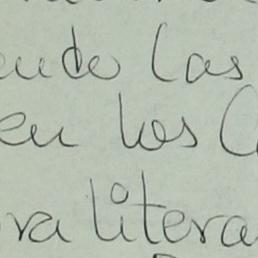 endo las
en los
ra litera